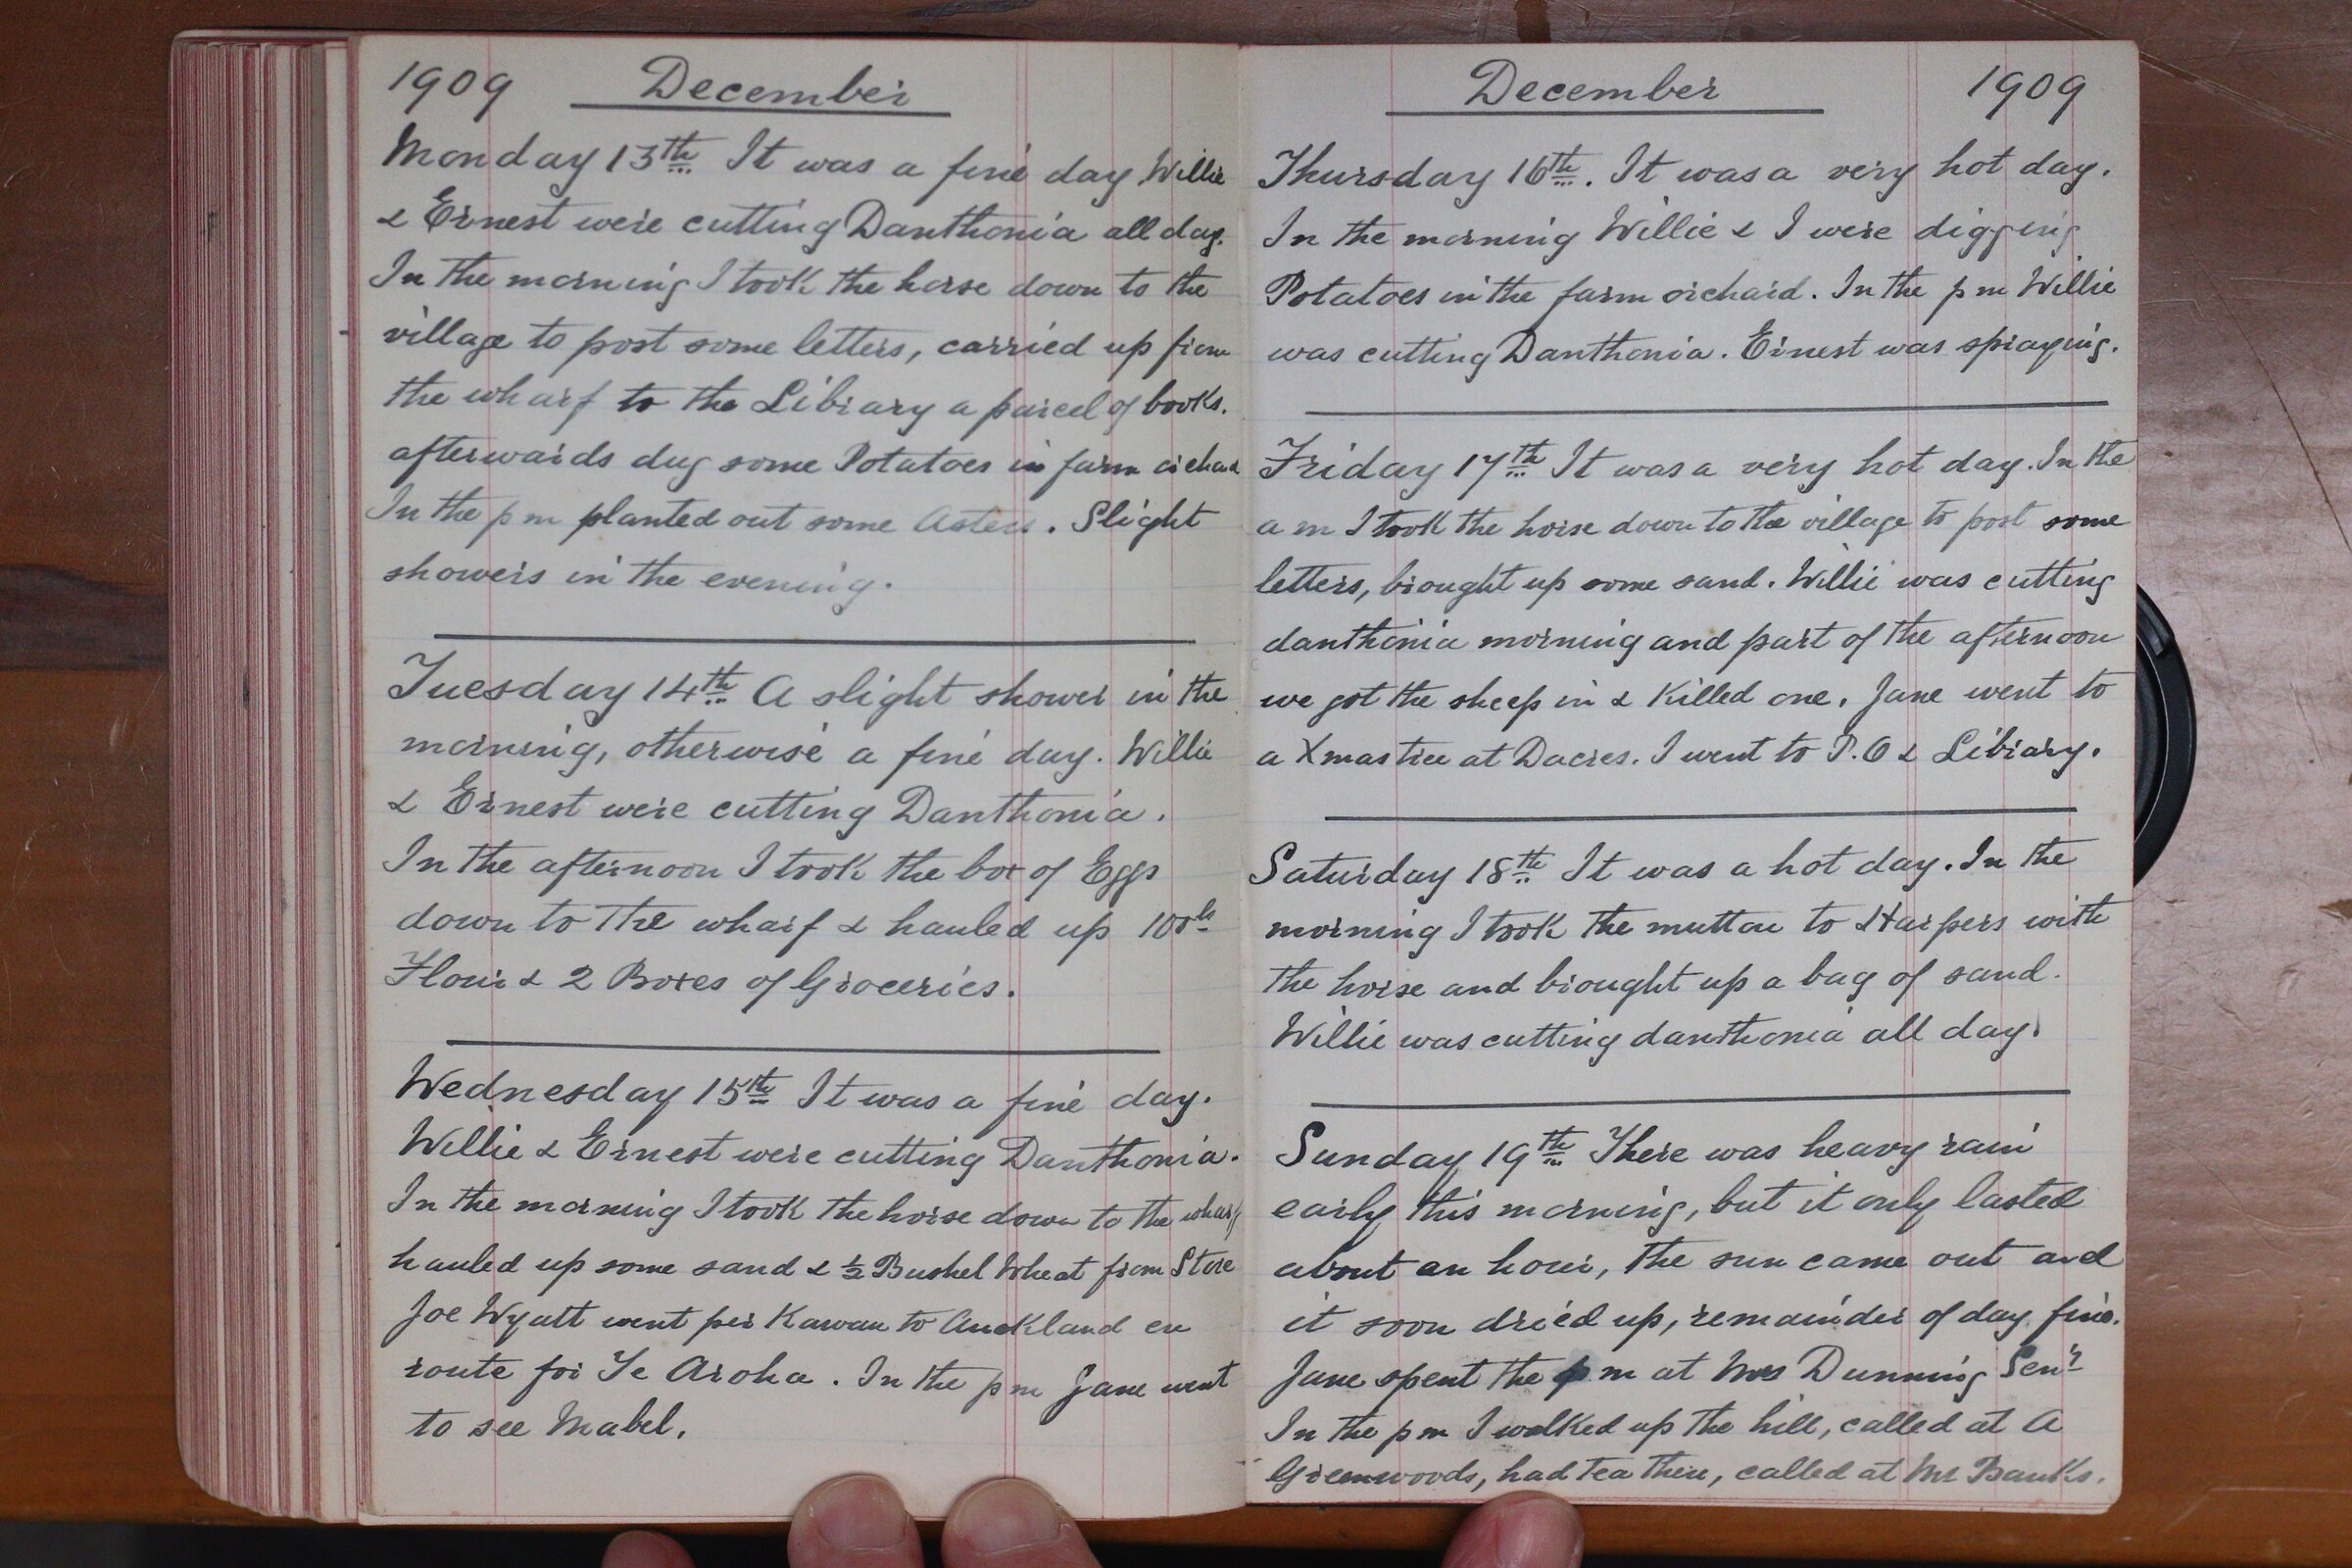 1909 December
Monday 13th It was a fine day Willie
& Ernest were cutting Danthonia all day.
In the morning I took the horse down to the
village to post some letters, carried up from
the wharf to the Library a parcel of books.
afterwards dug some Potatoes in farm orchard
In the p m planted out some Asters. Slight
showers in the evening.
Tuesday 14th A slight shower in the
morning, otherwise a fine day. Willie
& Ernest were cutting Danthonia.
In the afternoon I took the box of Eggs
down to the wharf & hauled up 100 ls
Flour & 2 Boxes of Groceries.
Wednesday 15th It was a fine day.
Willie & Ernest were cutting Danthonia.
In the morning I took the horse down to the wharf
hauled up some sand & ½ Bushel Wheat from Store
Joe Wyatt went per Kawau to Auckland en
route for Te Aroha. In the p m Jane went
to see Mabel.
December 1909
Thursday 16th. It was a very hot day.
In the morning Willie & I were digging
Potatoes in the farm orchard. In the p m Willie
was cutting Danthonia. Ernest was spraying.
Friday 17th It was a very hot day. In the
a m I took the horse down to the village to post some
letters, brought up some sand. Willie was cutting
danthonia morning and part of the afternoon
we got the sheep in & killed one. Jane went to
a Xmas tree at Dacres. I went to P.O & Library.
Saturday 18th It was a hot day. In the
morning I took the mutton to Harpers with
the horse and brought up a bag of sand.
Willie was cutting danthonia all day.
Sunday 19th There was heavy rain
early this morning, but it only lasted
about an hour, the sun came out and
it soon dried up, remainder of day fine.
Jane spent the p m at Mrs Dunning Senr
In the p m I walked up the hill, called at A
Greenwoods, had tea there, called at Mr Banks.